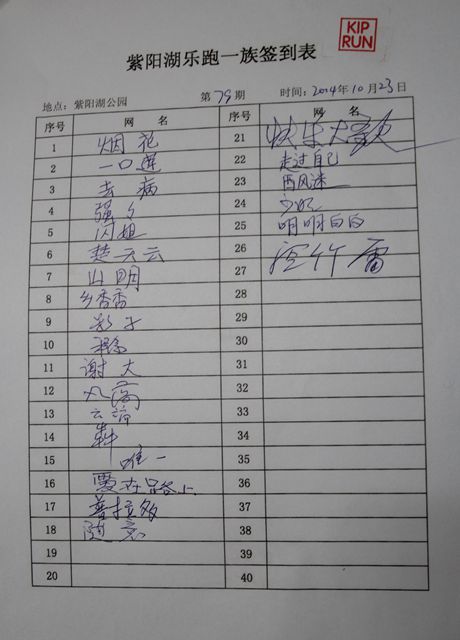 KIP
RUN
紫阳湖乐跑一族签到表
地点：紫阳湖公园 第79期 时间：2014年10月23日
序号 网 名 序号 网 名
1 烟花 21 快乐大
2 一口 22 走过自己
3 去病 23 西风
4 强 24
5 闪姐 25 明明白白
6 楚天云 26
7 山明 27 竹
8 乡香香 28
9 影子 29
10 30
11 谢大 31
12 32
13 云 33
14 34
15 唯一 35
16 要在路上 36
17 普拉多 37
18 随意 38
19 39
20 40